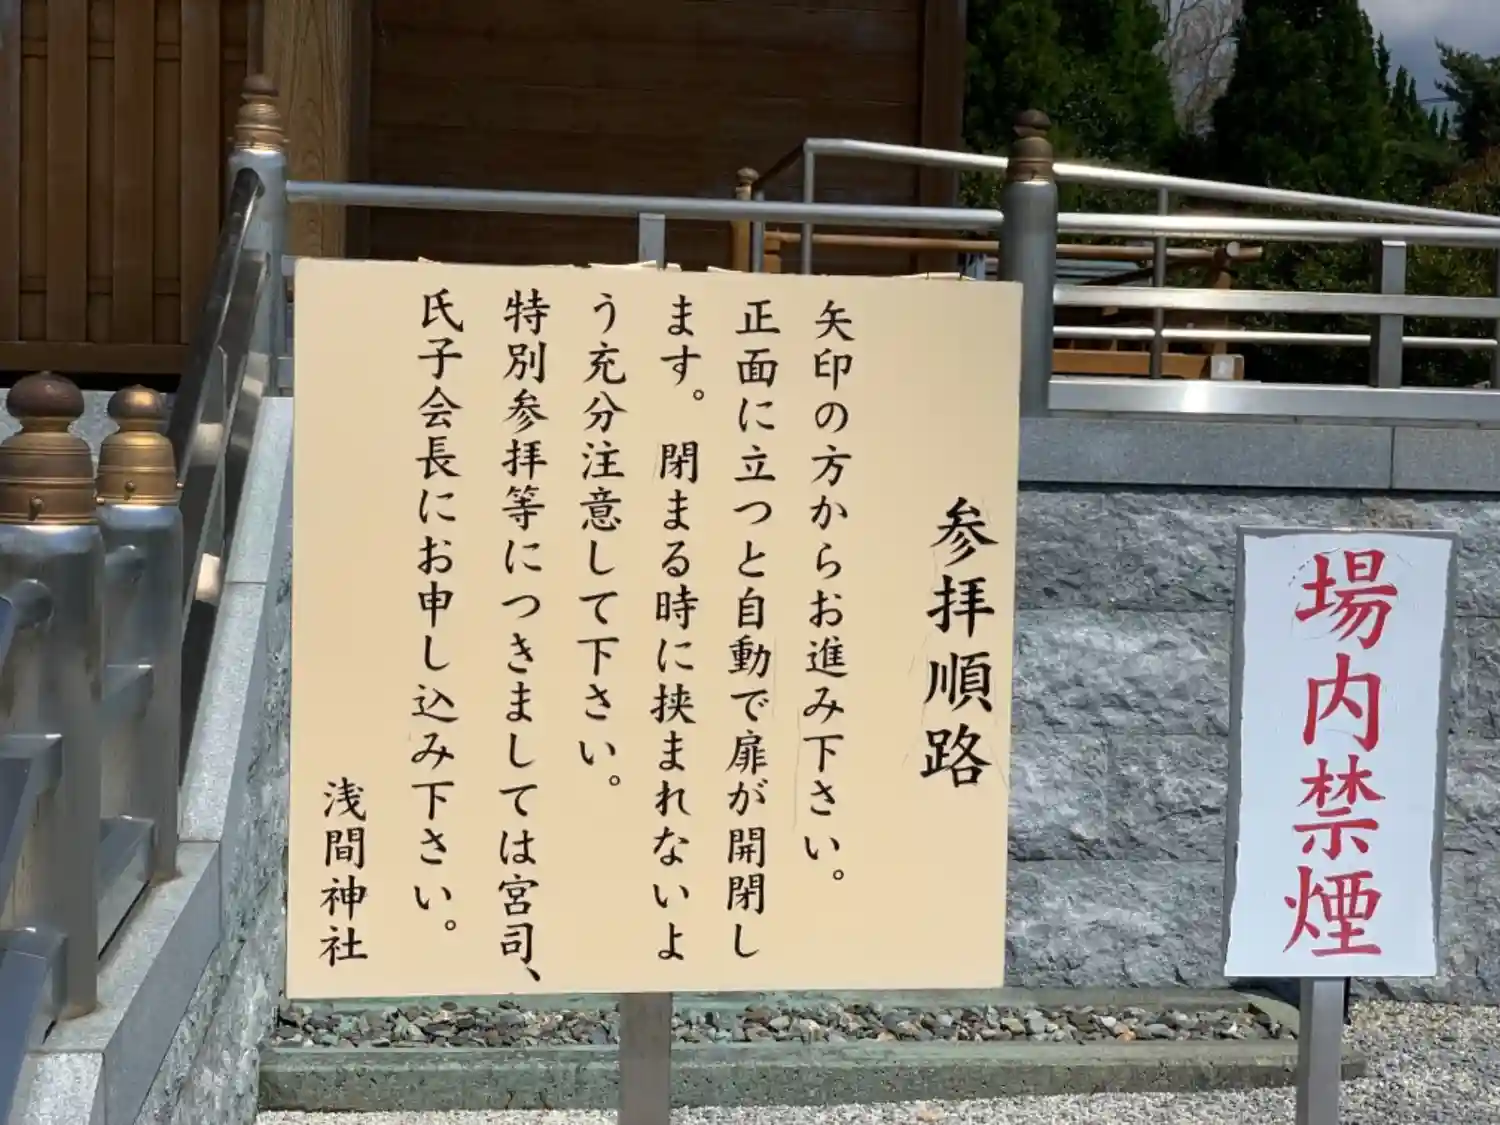 参拝順路
矢印の方からお進み下さい。
正面に立つと自動で扉が開閉し
ます。閉まる時に挟まれないよ
う充分注意して下さい。
特別参拝等につきましては宮司、
氏子会長にお申し込み下さい。
浅間神社
場内禁煙